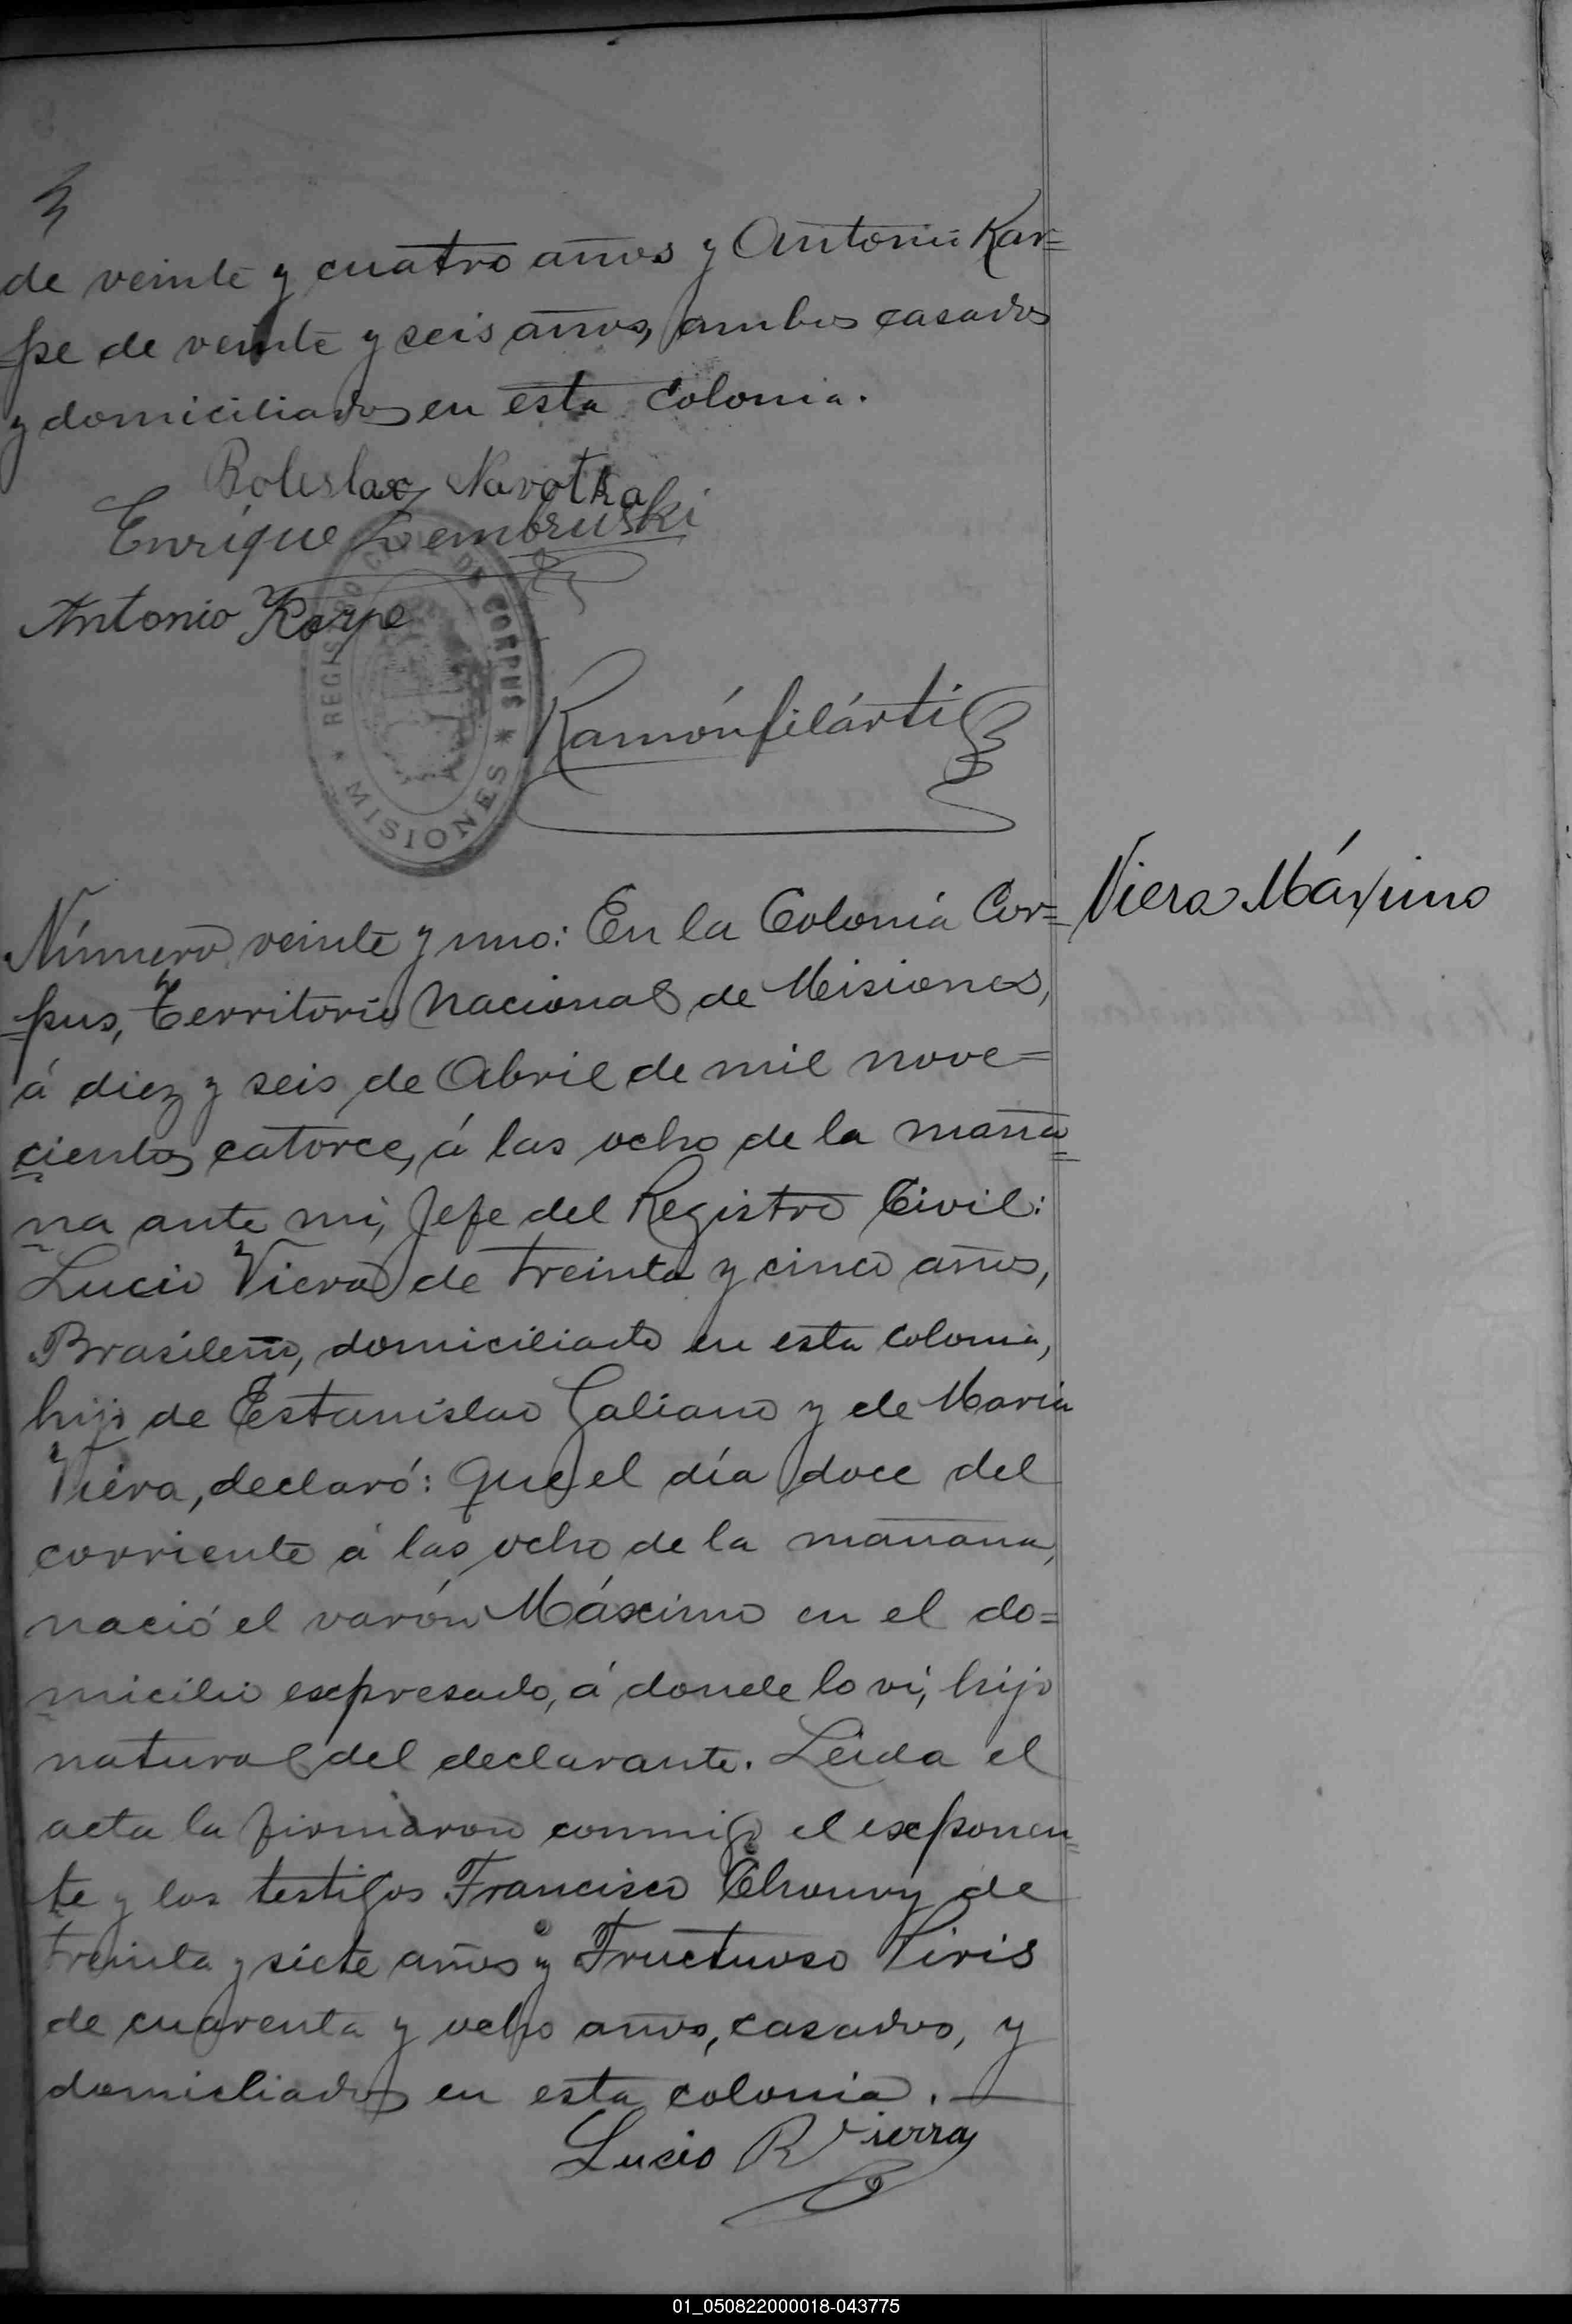 de veinte y cuatro años y Antonio Kar=
=pe de veinte y seis años, ambos casados
y domiciliados en esta Colonia.
Boleslao Navotka
Enrique Dembruski
Antonio Karpe
REGISTRO CIVIL DE CORPUS
* MISIONES *
Ramón filárti
Viera Máximo
Número veinte y uno: En la Colonia Cor=
=pus, Territorio Nacional de Misiones,
á diez y seis de Abril de mil nove=
cientos catorce, á las ocho de la maña=
na ante mi, Jefe del Registro Civil:
Lucio Viera de treinta y cinco años,
Brasileño, domiciliado en esta colonia,
hijo de Estanislao Galiano y de Maria
Viera, declaró: que el día doce del
corriente á las ocho de la mañana,
nació el varón Máximo en el do=
micilio expresado, á donde lo ví, hijo
natural del declarante. Leida el
acta la firmaron conmigo el exponen=
te y los testigos Francisco de
treinta y siete años y Fructuoso Piris
de cuarenta y ocho años, casados, y
domicliados en esta colonia.
Lucio R Vierra
01_050822000018-043775